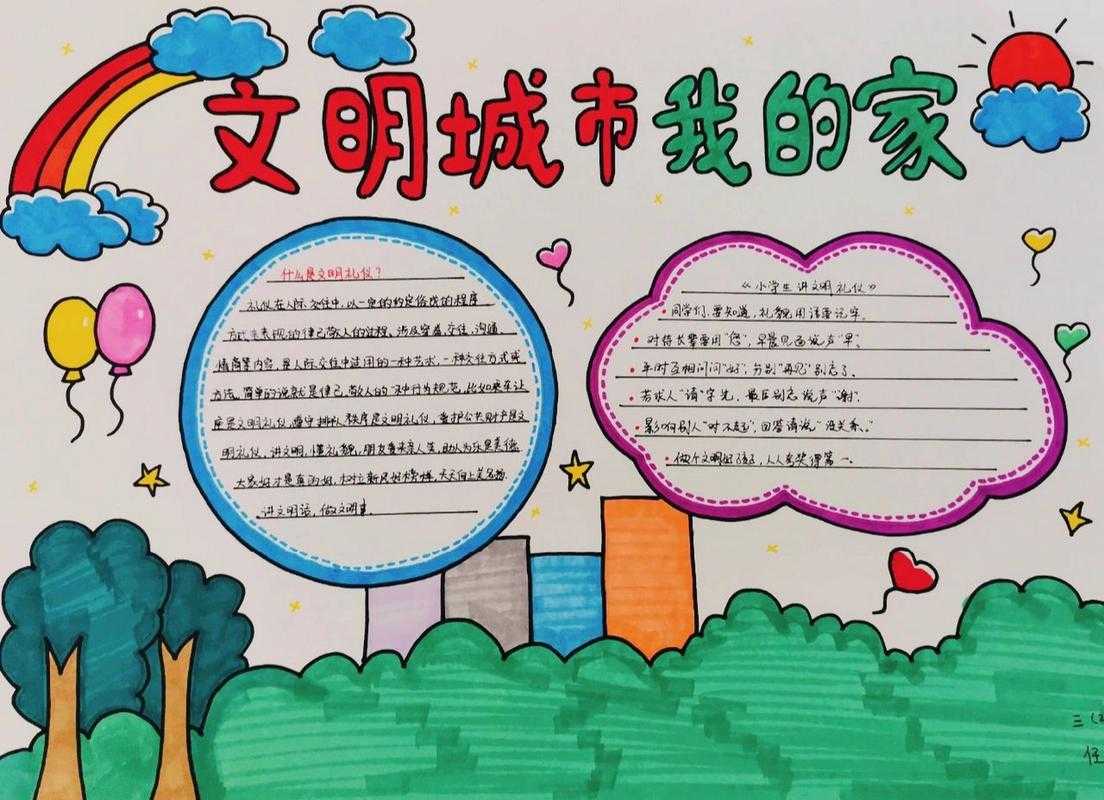 文明城市我的家
什么是文明礼仪?
礼仪在人际交往中,以一定的约定俗成的程序
方式来表现的律己敬人的过程,涉及穿着,交往,沟通,
情商等内容,是人际交往中适用的一种艺术,一种交往方式或
方法,简单的说就是律己,敬人的一种行为规范,比如乘车让
座是文明礼仪,遵守排队秩序是文明礼仪,爱护公共财产是文
明礼仪,讲文明,懂礼貌,朋友多来亲人笑,助人为乐是美德
大家好才是真的好,树立新风好榜样,天天向上美名扬
讲文明话,做文明事
《小学生讲文明礼仪》
同学们,要知道,礼貌用语要记牢,
对待长辈要用"您",早晨见面说声"早,
平时互相问问"好",分别"再见"别忘了,
若求人"请"字先,最后别忘说声"谢".
影响别人"对不起",回答请说"没关系,"
做个文明好孩子,人人夸奖得第一.
三(